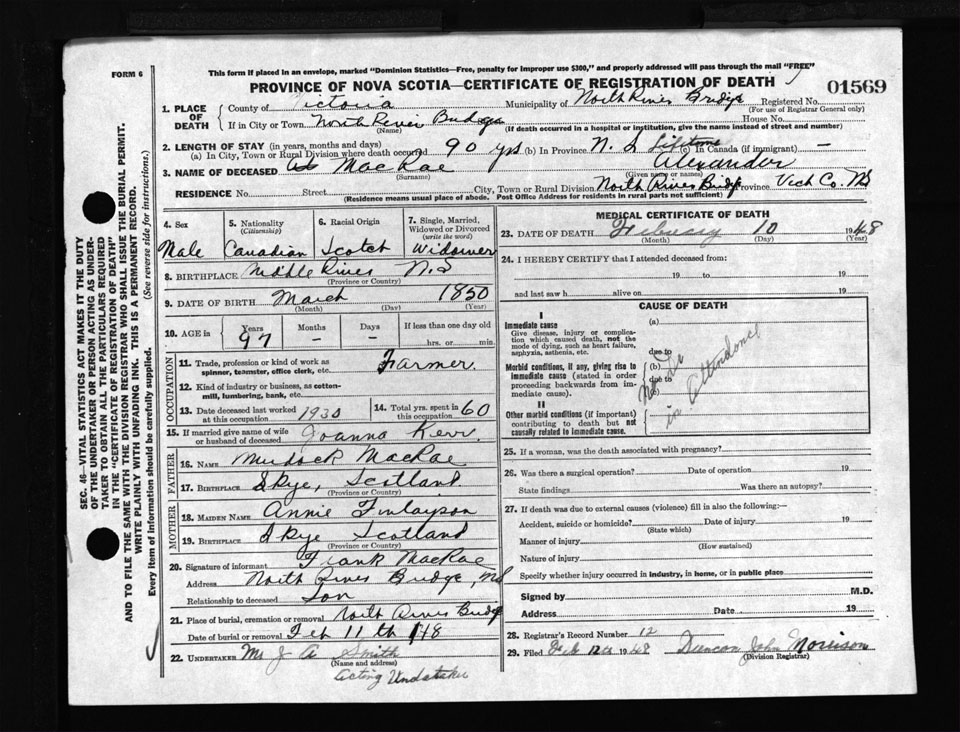 FORM 6
This form if placed in an envelope, marked "Dominion Statistics—Free, penalty for improper use $300," and properly addressed will pass through the mail "FREE"
PROVINCE OF NOVA SCOTIA—CERTIFICATE OF REGISTRATION OF DEATH
01569
1. PLACE OF DEATH
County of Victoria Municipality of North River Bridge Registered No.
(For use of Registrar General only)
If in City or Town North River Bridge House No.
(Name) (If death occurred in a hospital or institution, give the name instead of street and number)
2. LENGTH OF STAY (in years, months and days)
(a) In City, Town or Rural Division where death occurred 90 yrs (b) In Province N.S Lifetime (c) in Canada (if immigrant) —
3. NAME OF DECEASED MacRae Alexander
(Surname) (Given name or names)
RESIDENCE No. Street City, Town or Rural Division North River Bidge Province Vict Co. NS
(Residence means usual place of abode. Post Office Address for residents in rural parts not sufficient)
4. Sex
Male
5. Nationality
(Citizenship)
Canadian
6. Racial Origin
Scotch
7. Single, Married, Widowed or Divorced
(write the word)
Widower
8. BIRTHPLACE Middle River N.S
(Province or Country)
9. DATE OF BIRTH March 1850
(Month) (Day) (Year)
10. AGE in Years Months Days If less than one day old
97 – – hrs. or min.
OCCUPATION
11. Trade, profession or kind of work as spinner, teamster, office clerk, etc. Farmer
12. Kind of industry or business, as cotton-mill, lumbering, bank, etc.
13. Date deceased last worked at this occupation 1930
14. Total yrs. spent in this occupation 60
15. If married give name of wife or husband of deceased Joanna Kerr
FATHER
16. NAME Murdock MacRae
17. BIRTHPLACE Skye, Scotland
(Province or Country)
MOTHER
18. MAIDEN NAME Annie Finlayson
19. BIRTHPLACE Skye Scotland
(Province or Country)
20. Signature of informant Frank MacRae
Address North River Bridge, NS
Relationship to deceased Son
21. Place of burial, cremation or removal North River Bridge
Date of burial or removal Feb 11th 1948
22. UNDERTAKER Mr J A Smith
(Name and address)
Acting Undertaker
MEDICAL CERTIFICATE OF DEATH
23. DATE OF DEATH February 10 1948
(Month) (Day) (Year)
24. I HEREBY CERTIFY that I attended deceased from:
19 to 19
and last saw h alive on 19
CAUSE OF DEATH
I
Immediate cause (a)
Give disease, injury or complication which caused death, not the mode of dying, such as heart failure, asphyxia, asthenia, etc.
due to
Morbid conditions, if any, giving rise to immediate cause (stated in order proceeding backwards from immediate cause).
(b)
due to
(c)
II
Other morbid conditions (if important) contributing to death but not causally related to immediate cause.
No Dr in attendance
25. If a woman, was the death associated with pregnancy?
26. Was there a surgical operation? Date of operation 19
State findings Was there an autopsy?
27. If death was due to external causes (violence) fill in also the following:—
Accident, suicide or homicide? Date of injury 19
(State which)
Manner of injury
(How sustained)
Nature of injury
Specify whether injury occurred in industry, in home, or in public place
Signed by M.D.
Address Date 19
28. Registrar's Record Number 12
29. Filed Feb 12th 1948 Duncan John Morrison
(Division Registrar)
SEC. 46—VITAL STATISTICS ACT MAKES IT THE DUTY OF THE UNDERTAKER OR PERSON ACTING AS UNDERTAKER TO OBTAIN ALL THE PARTICULARS REQUIRED IN THE "CERTIFICATE OF REGISTRATION OF DEATH" AND TO FILE THE SAME WITH THE DIVISION REGISTRAR WHO SHALL ISSUE THE BURIAL PERMIT.
WRITE PLAINLY WITH UNFADING INK. THIS IS A PERMANENT RECORD.
Every item of information should be carefully supplied. (See reverse side for instructions.)